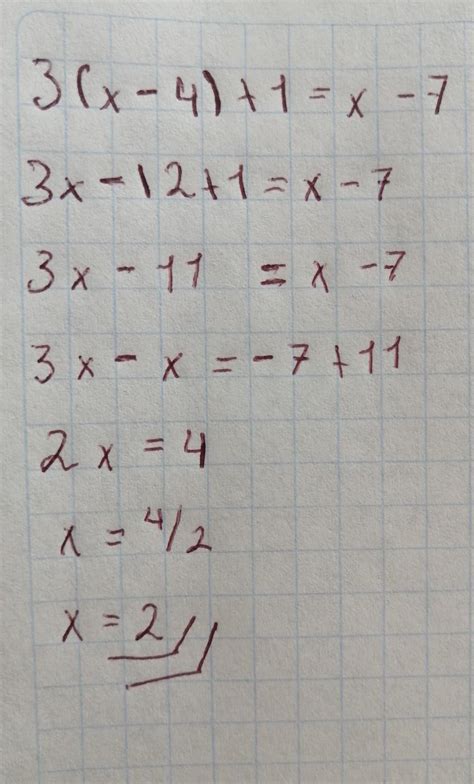 3(x-4)+1=x-7
3x-12+1=x-7
3x-11 =x-7
3x-x=-7+11
2x=4
x=4/2
x=2